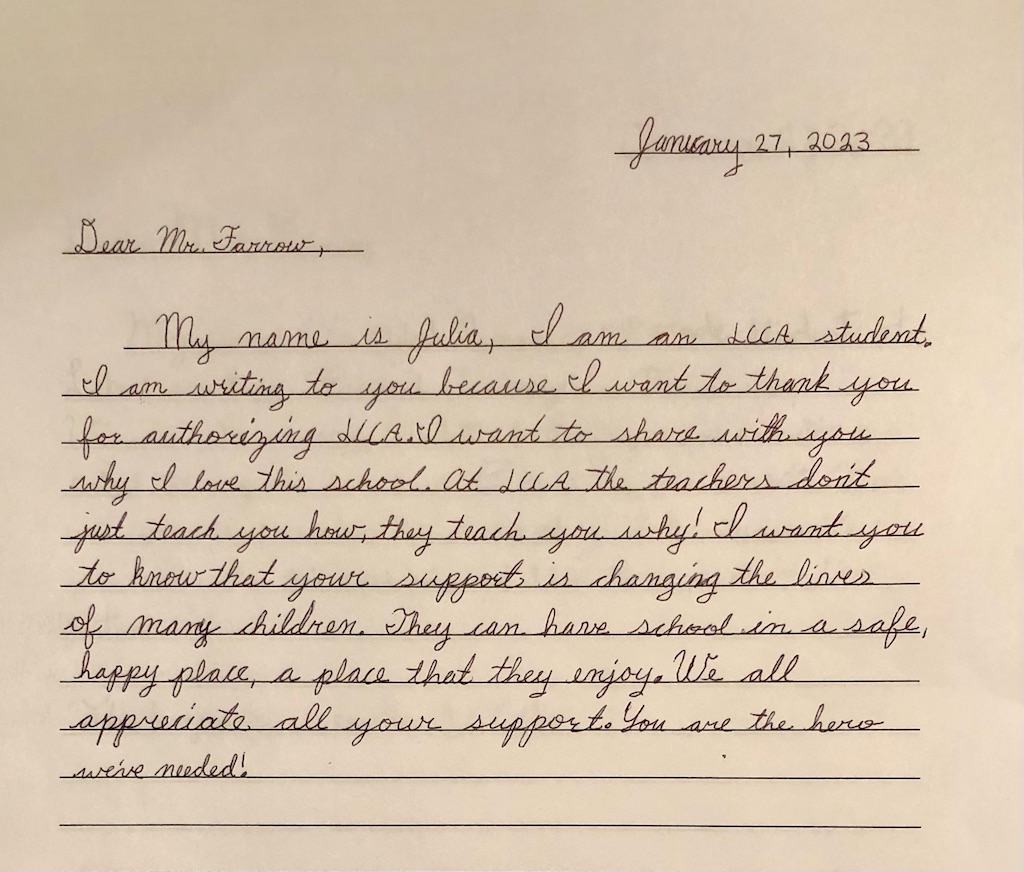 January 27, 2023
Dear Mr. Farrow,
My name is Julia, I am an LCCA student.
I am writing to you because I want to thank you
for authorizing LCCA. I want to share with you
why I love this school. At LCCA the teachers don't
just teach you how, they teach you why! I want you
to know that your support is changing the lives
of many children. They can have school in a safe,
happy place, a place that they enjoy. We all
appreciate all your support. You are the hero
we've needed!